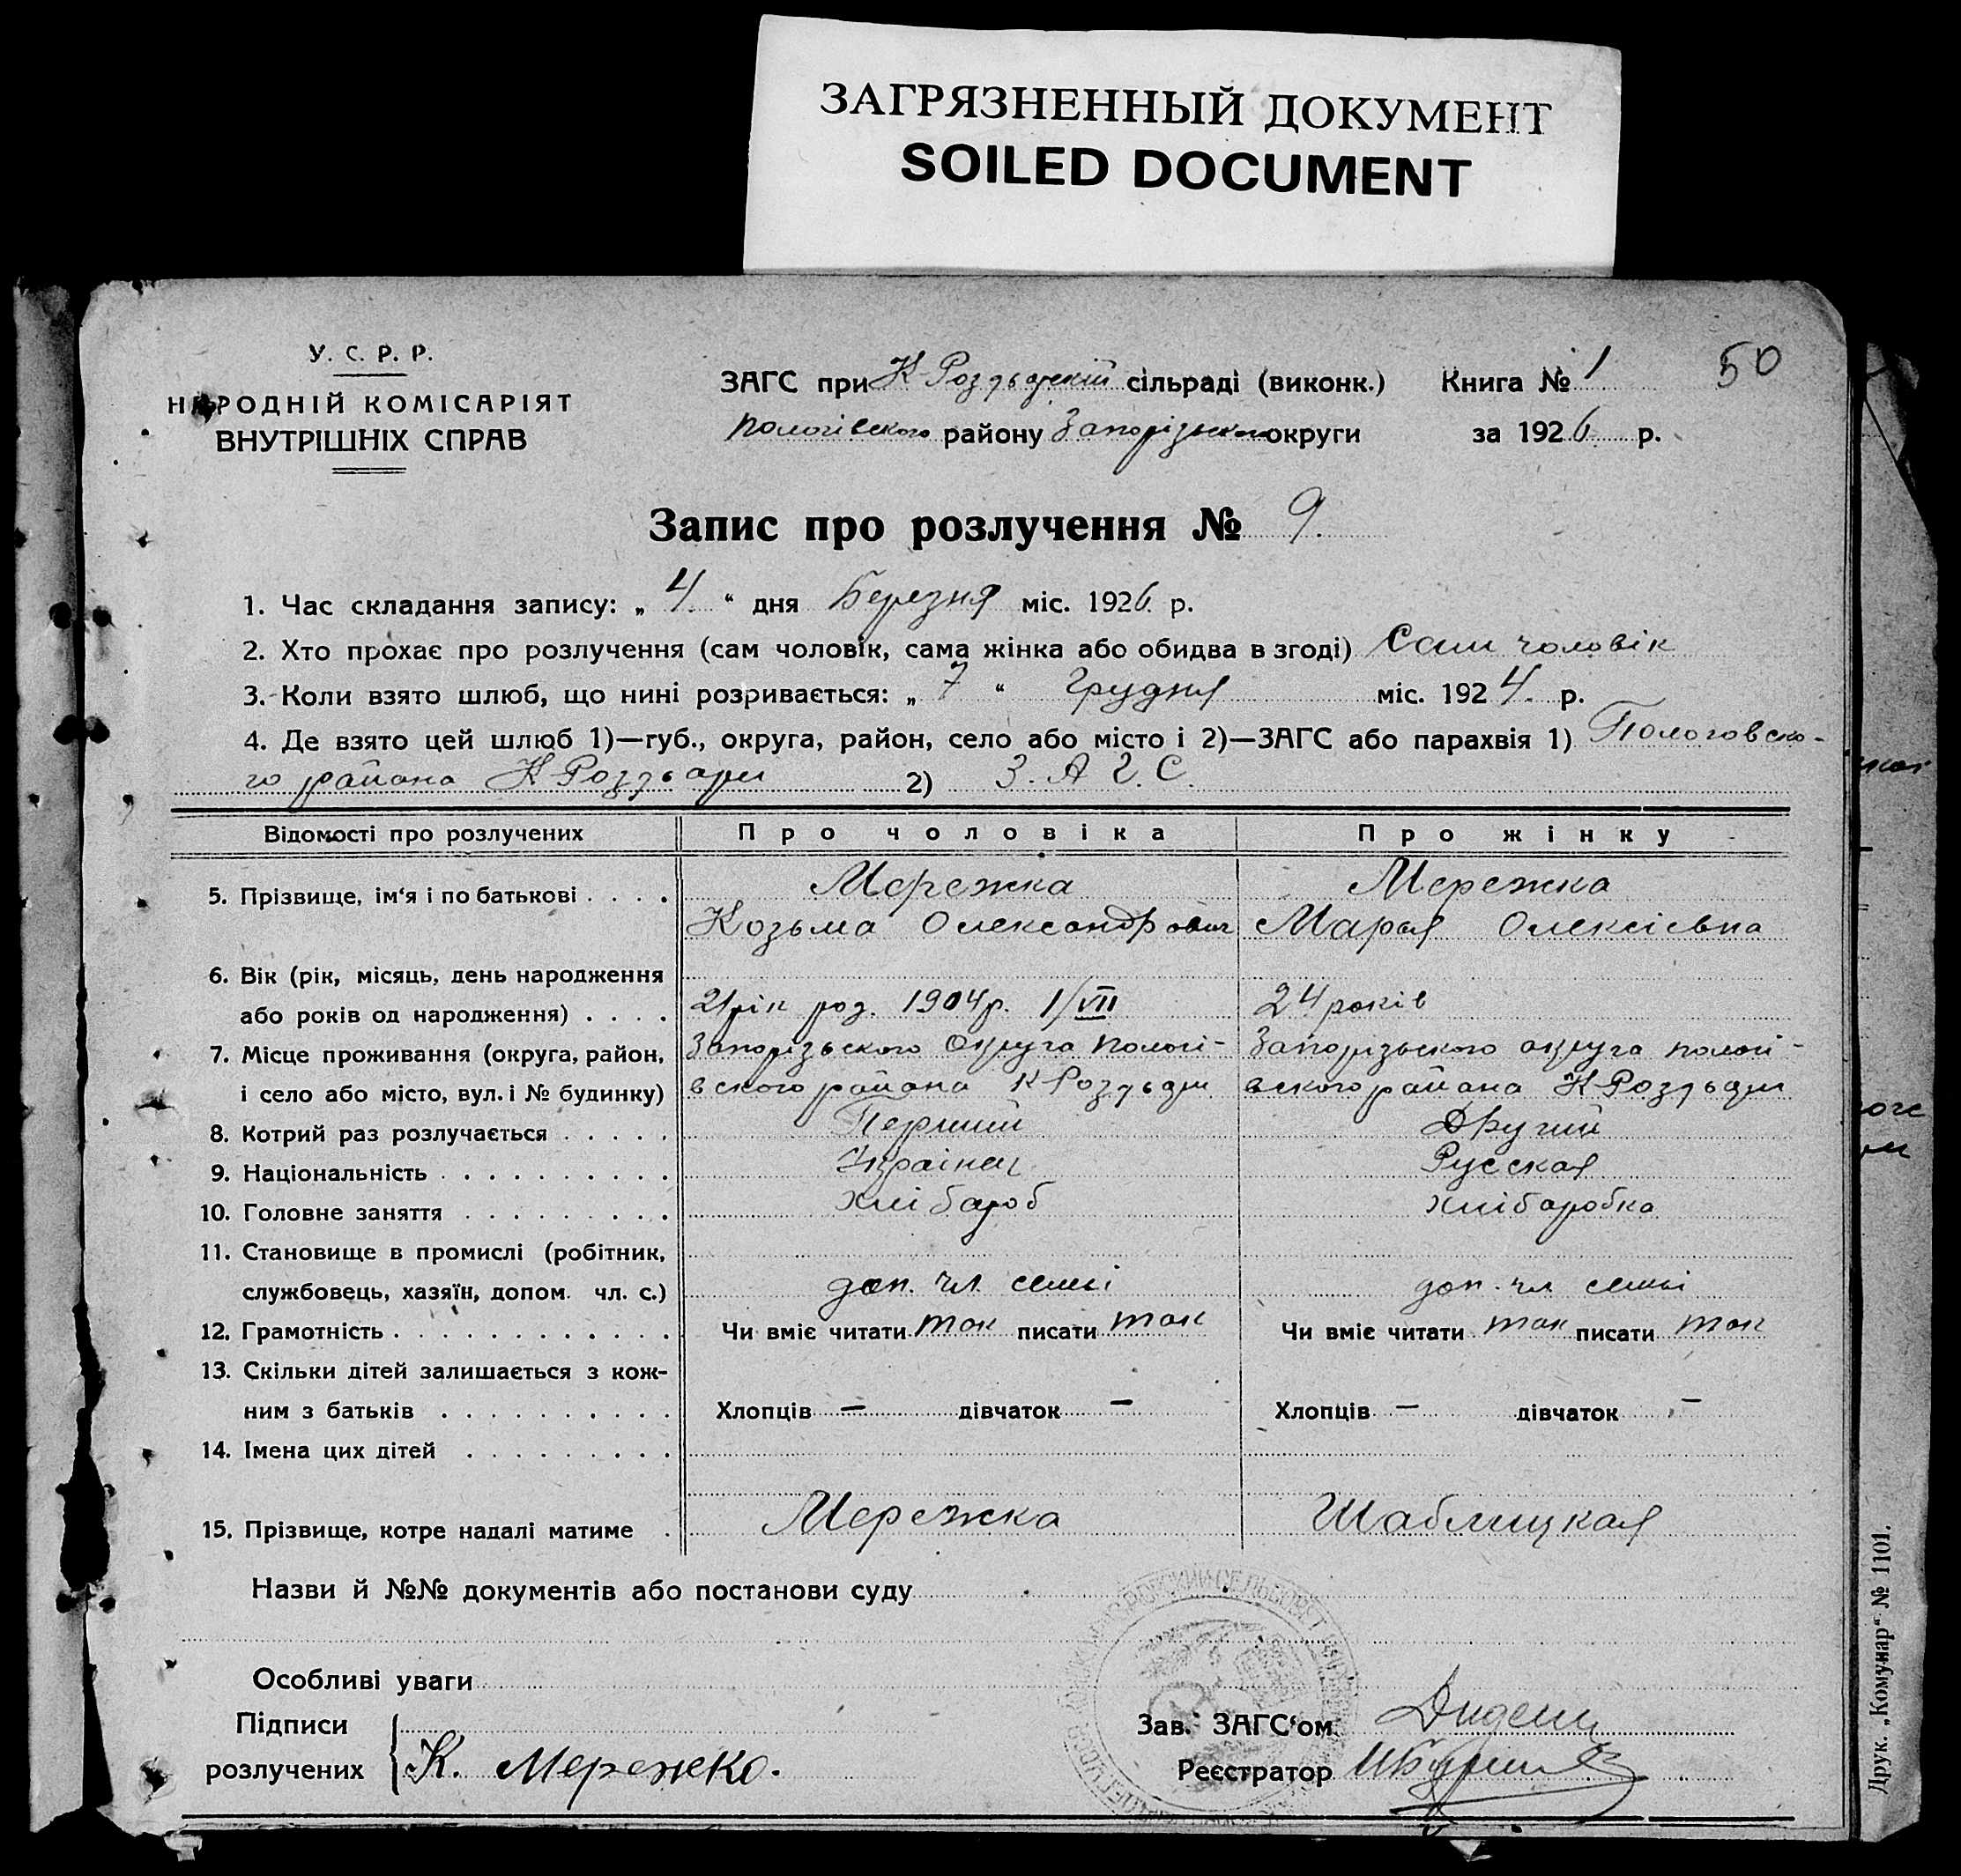 ЗАГРЯЗНЕННЫЙ ДОКУМЕНТ
SOILED DOCUMENT
У. С. Р. Р.
НАРОДНІЙ КОМІСАРІЯТ
ВНУТРІШНІХ СПРАВ
ЗАГС при К-Роздорскій сільраді (виконк.) Книга № 1 50
Пологівского району Запорізького округи за 1926 р.
Запис про розлучення № 9.
1. Час складання запису: „ 4 “ дня Березня міс. 1926. р.
2. Хто прохає про розлучення (сам чоловік, сама жінка або обидва в згоді) Сам чоловік
3. Коли взято шлюб, що нині розривається: „ 7 “ Грудня міс. 1924. р.
4. Де взято цей шлюб 1)—губ., округа, район, село або місто і 2)—ЗАГС або парахвія 1) Пологовско-
го района К-Роздори 2) З. А Г. С.
Відомості про розлучених Про чоловіка Про жінку
5. Прізвище, ім‘я і по батькові . . . . Мережка Мережка
Козьма Олександрович Марья Олексієвна
6. Вік (рік, місяць, день народження
або років од народження) . . . . 21 рік роз. 1904 р. 1/VII 24 років
7. Місце проживання (округа, район, Запорізьского округа пологі- Запорізьского округа пологі-
і село або місто, вул. і № будинку) вского района К-Роздори вского района К-Роздори
8. Котрий раз розлучається . . . . . Перший Другий
9. Національність . . . . . . . . . . Українец Русская
10. Головне заняття . . . . . . . . . хлібароб хлібаробка
11. Становище в промислі (робітник,
службовець, хазяїн, допом. чл. с.) доп. чл. семьі доп. чл семьі
12. Грамотність . . . . . . . . . . . . Чи вміє читати так писати так Чи вміє читати так писати так
13. Скільки дітей залишається з кож-
ним з батьків . . . . . . . . . . Хлопців — дівчаток — Хлопців — дівчаток —
14. Імена цих дітей . . . . . . . . .
15. Прізвище, котре надалі матиме . Мережка Шаблицкая
Назви й №№ документів або постанови суду
Особливі уваги
Підписи
Зав. ЗАГС‘ом
розлучених К. Мережко. Реєстратор
Друк. „Комунар“ № 1101.